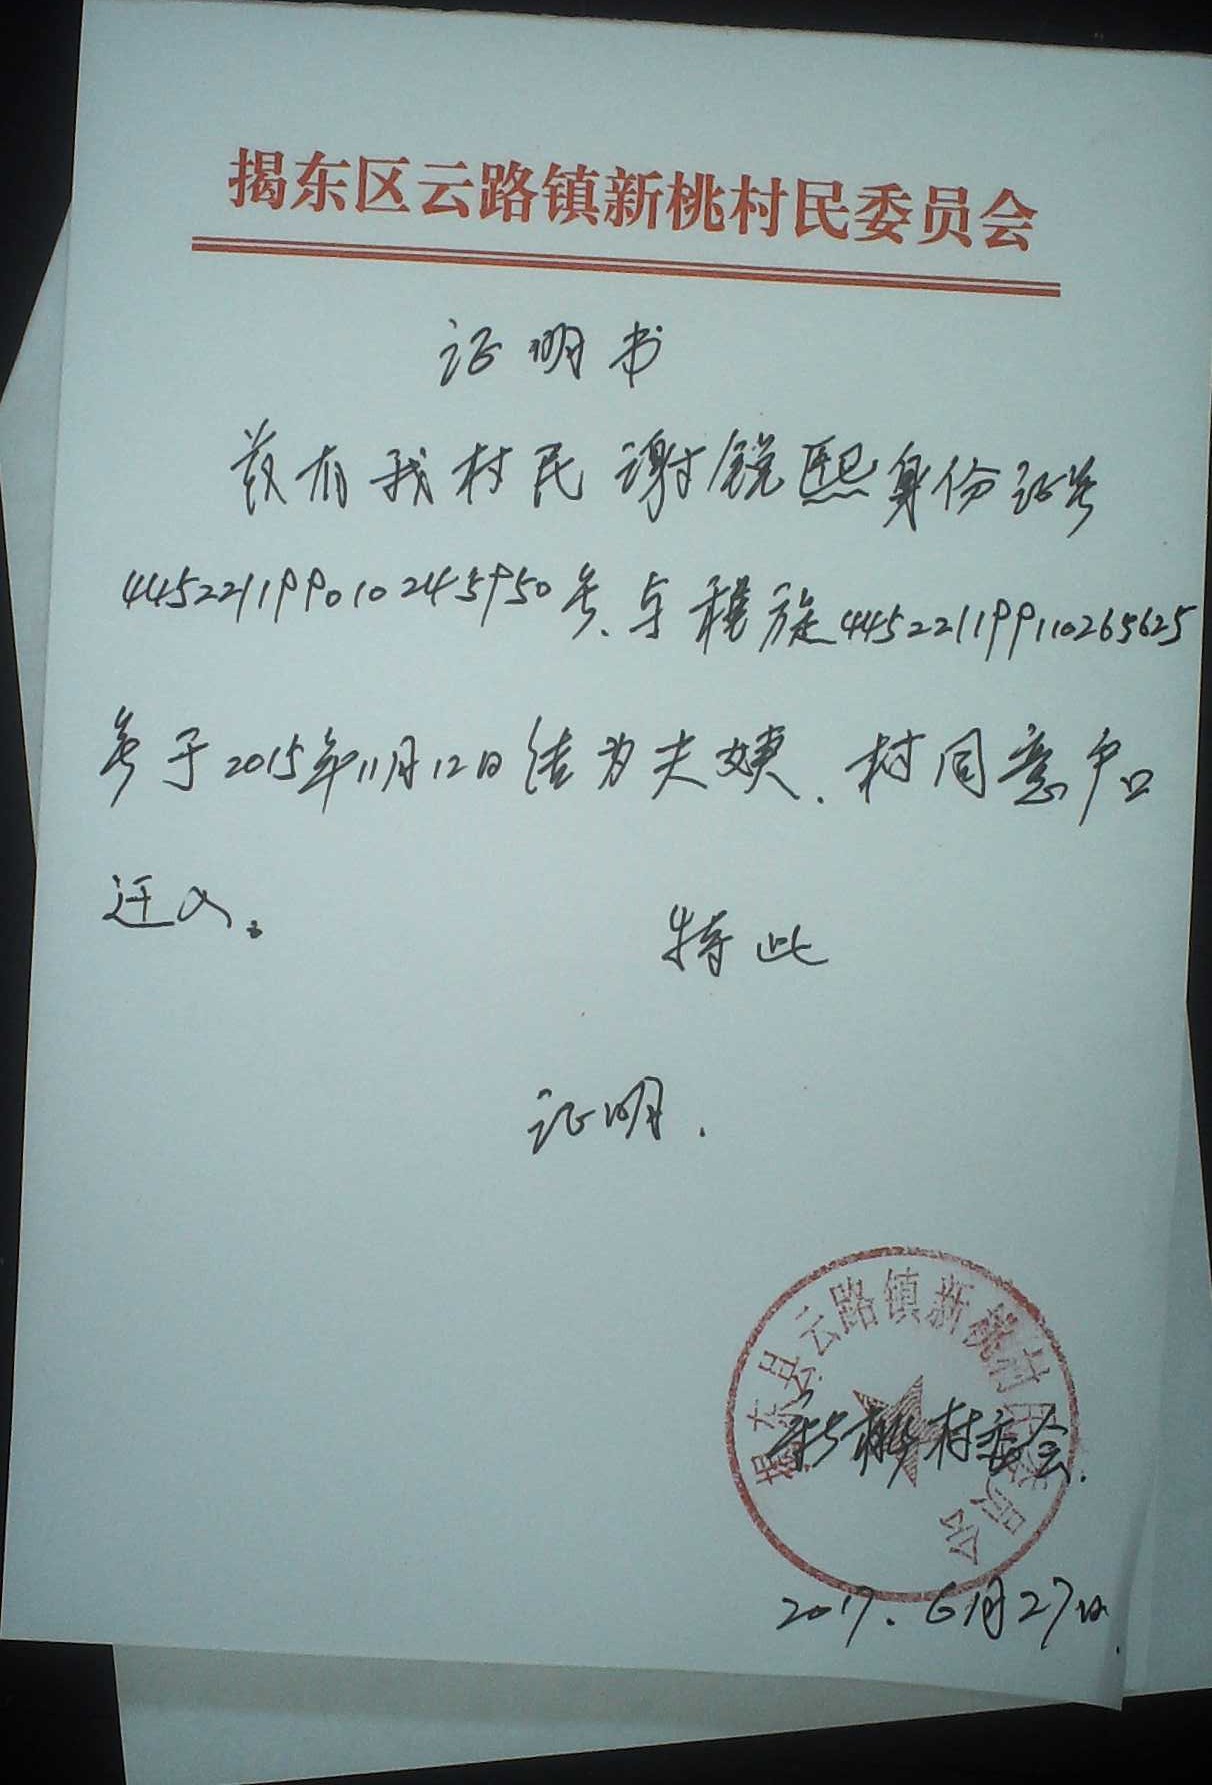 揭东区云路镇新桃村民委员会
证明书
兹有我村民谢锐熙身份证号
445221199010245950号、与穆旋445221199110265625
号于2015年11月12日结为夫姨.村同意户口
迁入。
特此
证明.
揭东县云路镇新桃村民委员会
新桃村委会.
2017.6月27日.